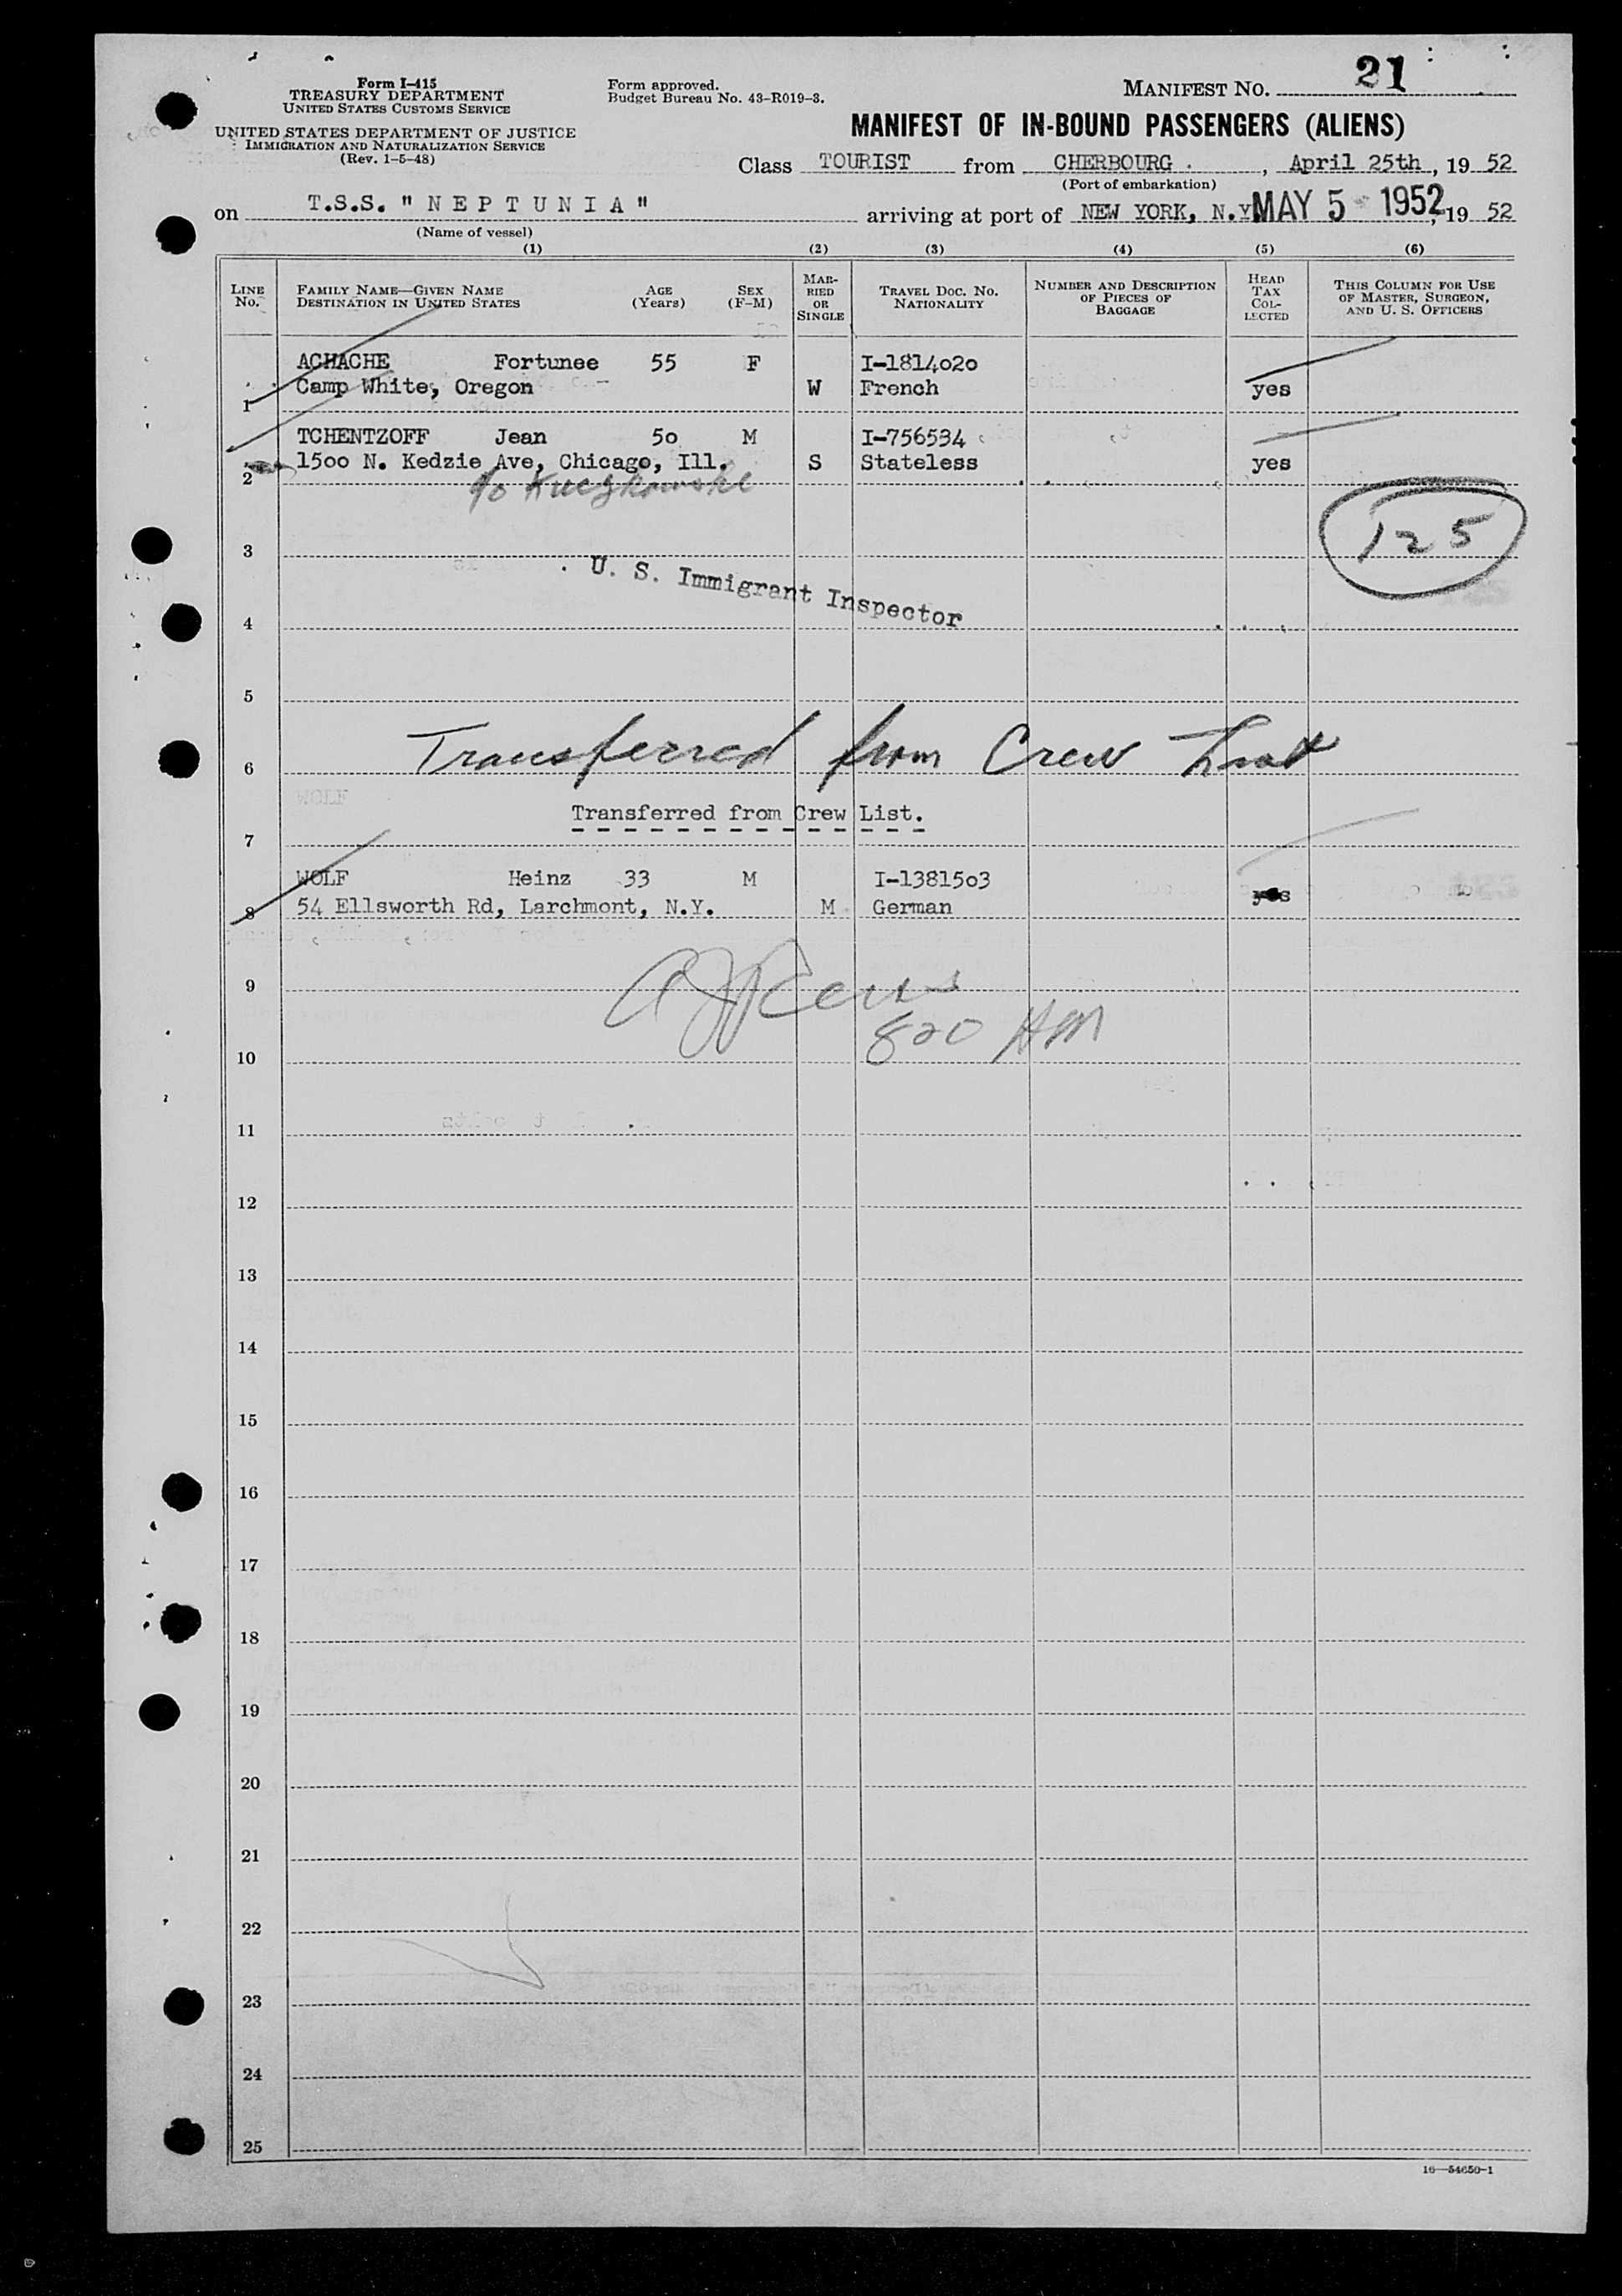 Form I-415
TREASURY DEPARTMENT
UNITED STATES CUSTOMS SERVICE
UNITED STATES DEPARTMENT OF JUSTICE
IMMIGRATION AND NATURALIZATION SERVICE
(Rev. 1-5-48)
Form approved.
Budget Bureau No. 43-R019-3.
MANIFEST NO. 21
MANIFEST OF IN-BOUND PASSENGERS (ALIENS)
Class TOURIST from CHERBOURG . , April 25th, 19 52
(Port of embarkation)
on T.S.S. " N E P T U N I A " arriving at port of NEW YORK, N.Y MAY 5 1952, 19 52
(Name of vessel)
(1) (2) (3) (4) (5) (6)
LINE No. FAMILY NAME—GIVEN NAME DESTINATION IN UNITED STATES AGE (Years) SEX (F-M) MARRIED OR SINGLE TRAVEL DOC. No. NATIONALITY NUMBER AND DESCRIPTION OF PIECES OF BAGGAGE HEAD TAX COLLECTED THIS COLUMN FOR USE OF MASTER, SURGEON, AND U. S. OFFICERS
ACHACHE Fortunee 55 F I-1814020
1 Camp White, Oregon W French yes
TCHENTZOFF Jean 50 M I-756534
2 1500 N. Kedzie Ave, Chicago, Ill. S Stateless yes
c/o Kuczkowski
125
3
U. S. Immigrant Inspector
4
5
6 Transferred from Crew List
Transferred from Crew List.
7
WOLF Heinz 33 M I-1381503
8 54 Ellsworth Rd, Larchmont, N.Y. M German yes
9
820 AM
10
11
12
13
14
15
16
17
18
19
20
21
22
23
24
25
16—54650-1